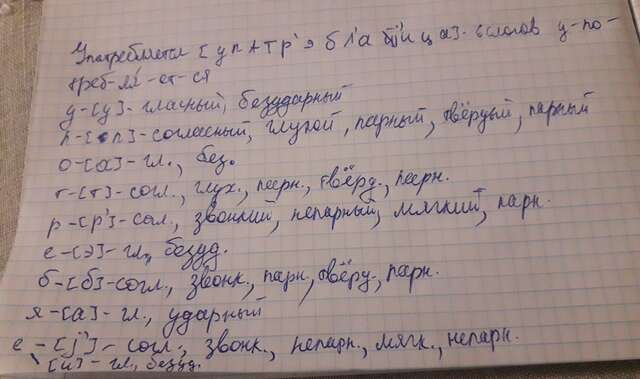 Употребляется [упатр'эбл'а j'ица] - 6 слогов у-по-
треб-ля-ет-ся
у-[у]-гласный, безударный
п-[п]-согласный, глухой, парный, твёрдый, парный
о-[а]-гл., без.
т-[т]-согл., глух., парн., твёрд., парн.
р-[р']-согл., звонкий, непарный, мягкий, парн.
е-[э]-гл., безуд.
б-[б]-согл., звонк., парн., твёрд., парн.
я-[а]-гл., ударный
е-[j']-согл., звонк., непарн., мягк., непарн.
\[и]-гл., безуд.